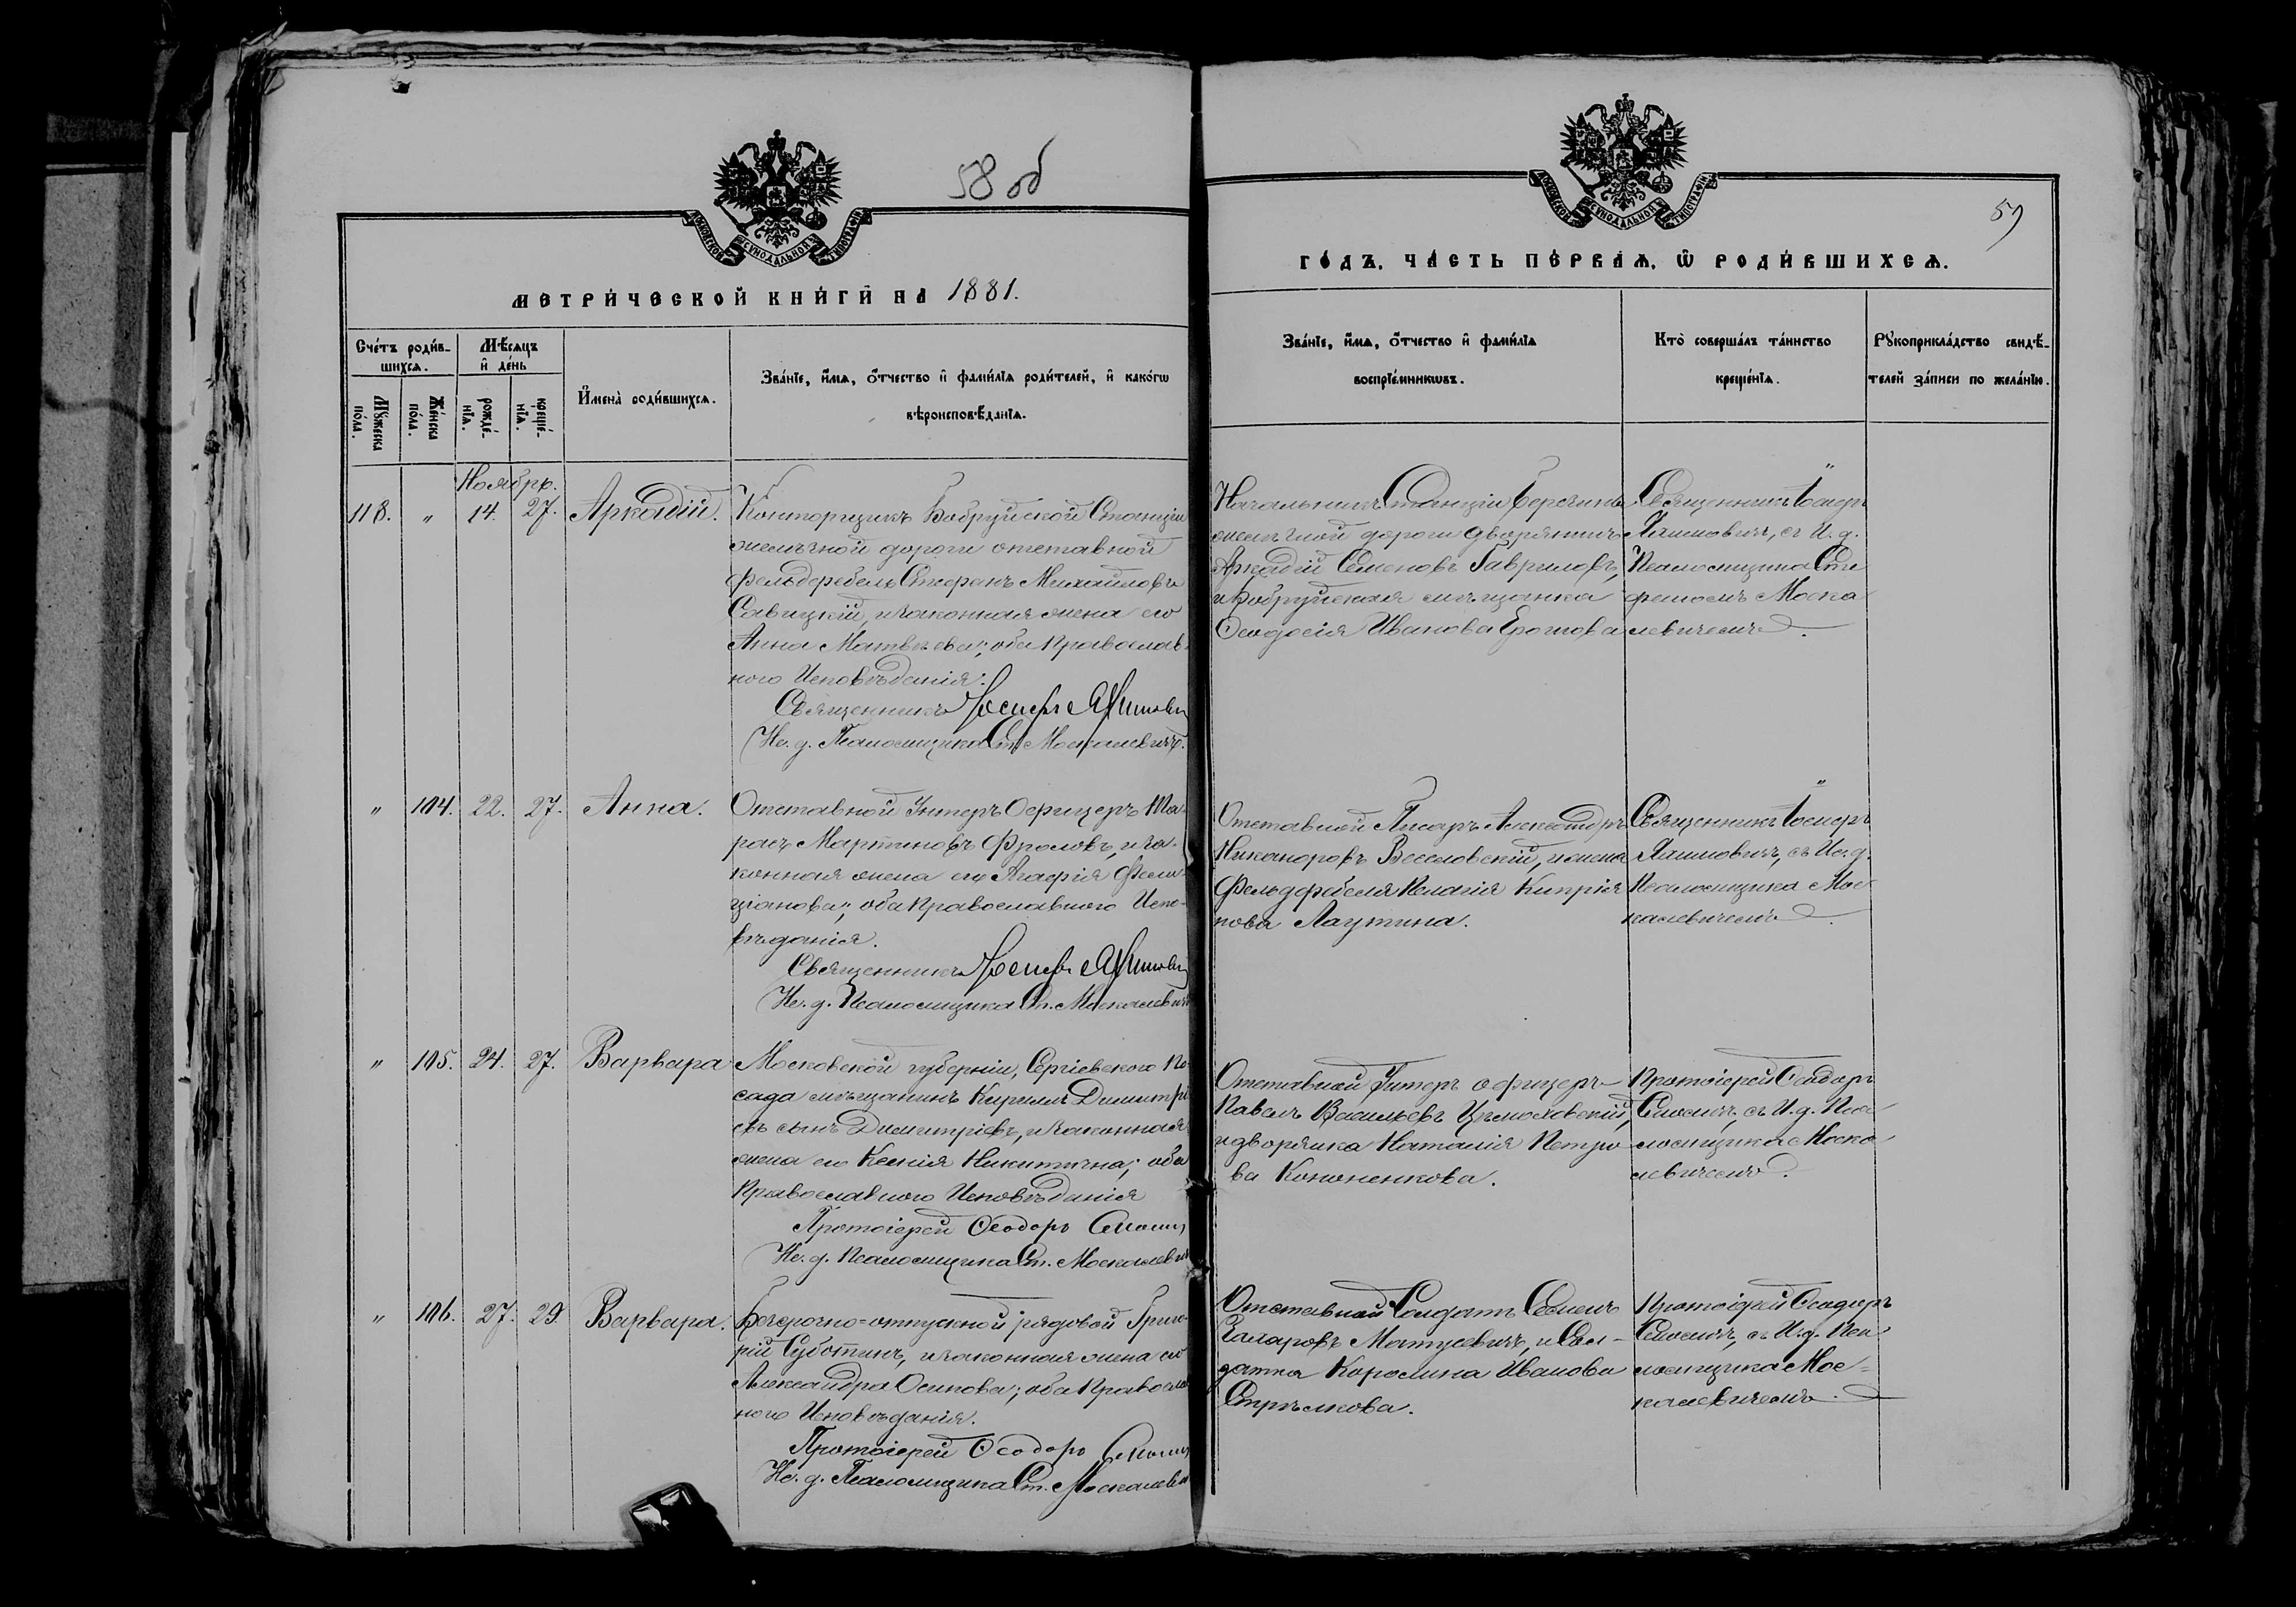 58 об
МОСКОВСКОЙ СѴНОДАЛЬНОЙ ТИПОГРАФІИ
МЕТРИ́ЧЕСКОЙ КНИ́ГИ НА 1881.
Сче́тъ роди́в-
шихсѧ.
Мѣ́сѧцъ
и҆ де́нь
Мꙋ́жеска по́ла.
Же́нска по́ла.
рожде́-
нїѧ.
креще́-
нїѧ.
И҆мена̀ роди́вшихсѧ.
Зва́нїе, и҆́мѧ, ѻ҆́тчество и҆ фами́лїѧ роди́телей, и҆ како́гѡ
вѣроисповѣ́данїѧ.
Ноябрь.
118. " 14. 27. Аркадій.
Конторщикъ Бобруйской Станціи
желѣзной дороги отставной
фельдфебель Стефанъ Михайловъ
Савицкій, и законная жена его
Анна Матвѣева; оба Православ-
ного Исповѣданія.
Священникъ Іосифъ
И. д. Псаломщика Ст. Москалевичъ.
" 104. 22. 27. Анна.
Отставной Унтеръ Офицеръ Та-
расъ Мартиновъ Фроловъ, и за-
конная жена его Агафія Фели-
ціанова; оба Православного Испо-
вѣданія.
Священникъ Іосифъ
И. д. Псаломщика Ст. Москалевичъ
" 105. 24. 27. Варвара
Московской губерніи, Сергіевского По-
сада мѣщанинъ Кириллъ Димитрі
евъ сынъ Димитріевъ, и законная
жена его Ксенія Никитична; оба
Православного Исповѣданія
Протоіерей Ѳеодоръ
И. д. Псаломщика Ст. Москалевичъ
" 106. 27. 29. Варвара.
Безсрочно-отпускной рядовой Григо-
рій Суботинъ, и законная жена его
Александра Осипова; оба Православ
ного Исповѣданія.
Протоіерей Ѳеодоръ
И. д. Псаломщика Ст. Москалевичъ
59
МОСКОВСКОЙ СѴНОДАЛЬНОЙ ТИПОГРАФІИ
ГО́ДЪ. ЧА́СТЬ ПЕ́РВАѦ. Ѡ҆ РОДИ́ВШИХСѦ.
Зва́нїе, и҆́мѧ, ѻ҆́тчество и҆ фами́лїѧ
воспрїе́мникѡвъ.
Кто̀ соверша́лъ та́инство
креще́нїѧ.
Рꙋкоприкла́дство свидѣ́-
телей за́писи по жела́нїю.
Начальникъ Станціи Березина
желѣзной дороги дворянинъ
Аркадій Семеновъ Гавриловъ,
и Бобруйская мѣщанка
Ѳеодосія Иванова
Священникъ Іосифъ
съ И. д.
Псаломщика Сте
фаномъ Моска
левичемъ.
Отставной Писарь Александръ
Никаноровъ Веселовскій, и жена
Фельдфебеля Пелагія Кипрія
нова Лаутина.
Священникъ Іосифъ
съ И. д.
Псаломщика Мос-
калевичемъ.
Отставной Унтеръ офицеръ
Павелъ Васильевъ
и дворянка Наталія Петро
ва Кононенкова.
Протоіерей Ѳеодоръ
съ И. д. Пса-
ломщика Моска
левичемъ.
Отставной Солдатъ Семенъ
Захаровъ Матусевичъ, и Сол-
датка Каролина Иванова
Стрѣлкова.
Протоіерей Ѳеодоръ
съ И. д. Пса
ломщика Мос-
калевичемъ.